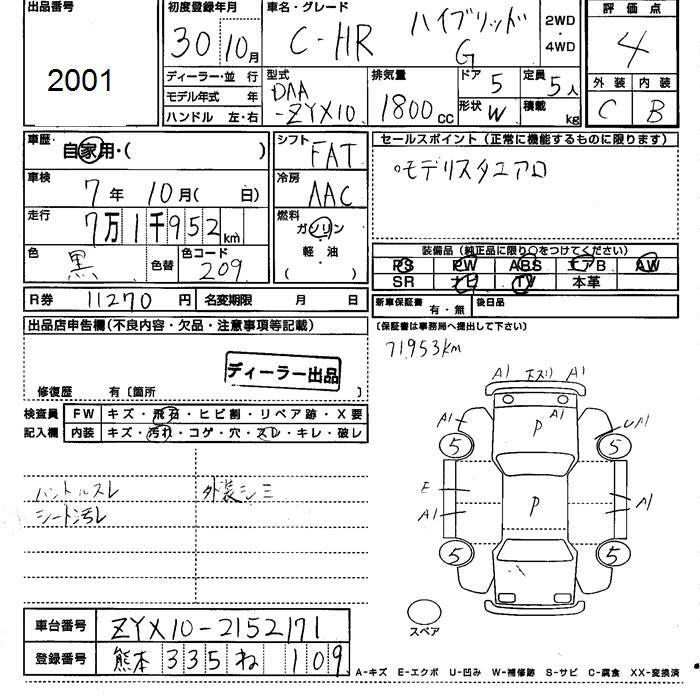 出品番号
2001
初度登録年月
30年10月
車名・グレード
C-HR ハイブリッド G
2WD・4WD
評価点
4
外装 内装
C B
ディーラー・並 行
モデル年式 年
ハンドル 左・右
型式
DAA-ZYX10
排気量
1800cc
ドア
5
形状
W
定員
5人
積載
kg
車歴・
自家用・( )
シフト
FAT
車検
7年 10月( 日)
冷房
AAC
走行
7万1千952km
燃料
ガソリン・軽・油( )
色
黒
色替
色コード
209
R券 11270円 名変期限 月 日
セールスポイント(正常に機能するものに限ります)
モデリスタエアロ
装備品(純正品に限り○をつけてください)
PS PW ABS エアB AW
SR ナビ TV 本革
新車保証書
有・無
後日品
(保証書は事務局へ提出して下さい)
71953km
出品店申告欄(不良内容・欠品・注意事項等記載)
ディーラー出品
修復歴 有〔箇所 〕
検査員 FW キズ・飛石・ヒビ割・リペア跡・X要
記入欄 内装 キズ・汚れ・コゲ・穴・スレ・キレ・破レ
ハンドルスレ
シート汚レ
外装シミ
A1 下スリ A1
A1 P A1 UA1
5 5
E
A1 P A1
5 5
スペア
車台番号 ZYX10-2152171
登録番号 熊本 335 ね 109
A-キズ E-エクボ U-凹み W-補修跡 S-サビ C-腐食 XX-変換済